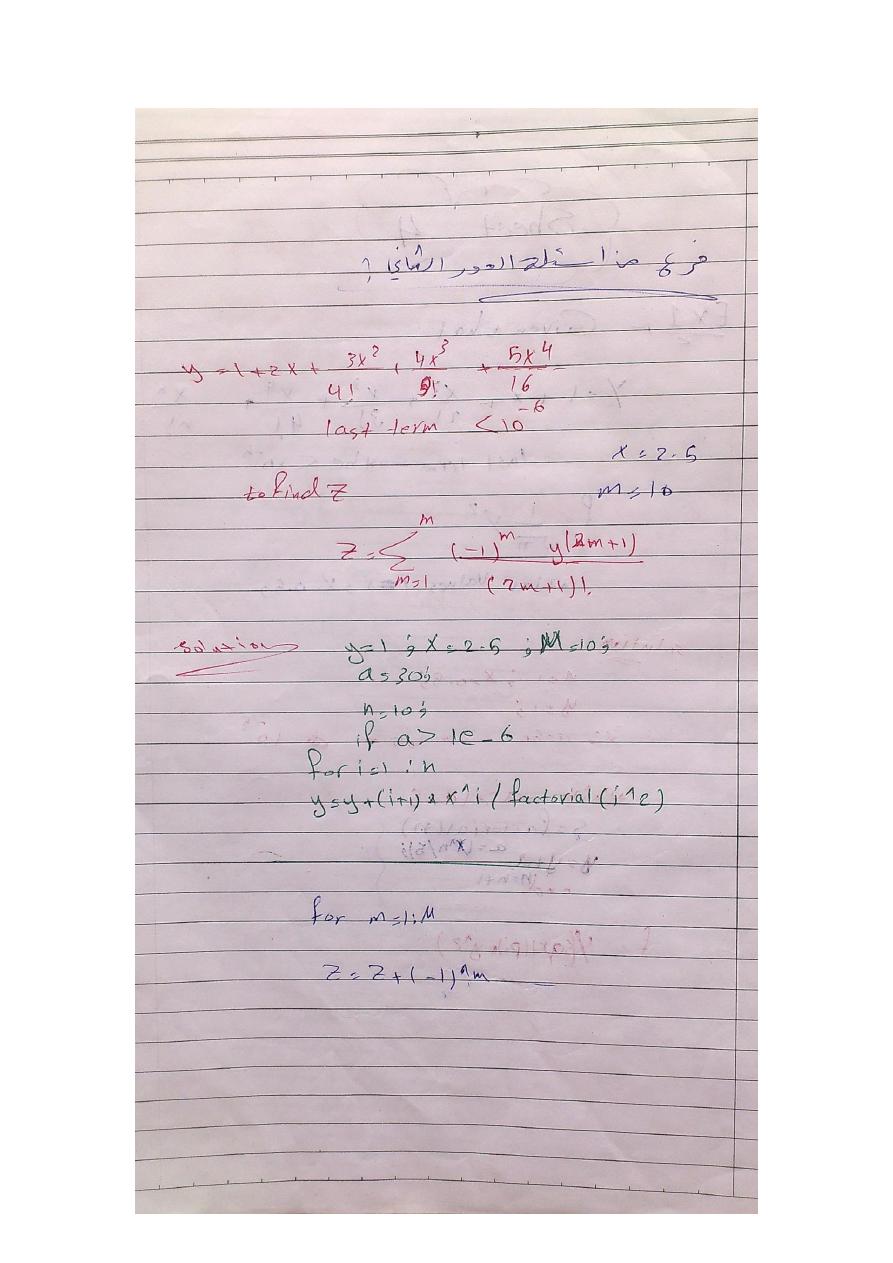 فرع من اسئلة الدور الثاني ؟
y = 1 + 2x + 3x²/4! + 4x³/9! + 5x⁴/16
last term < 10⁻⁶
x = 2.5
to find z
m = 10
z = Σ_{m=1}^{m} (-1)^m y(2m+1) / (2m+1)!
solution
y=1 ; x=2.5 ; M=10;
a=30;
n=10;
if a> 1e-6
for i=1:n
y=y+(i+1)*x^i/factorial(i^2)
for m=1:M
z=z+(-1)^m